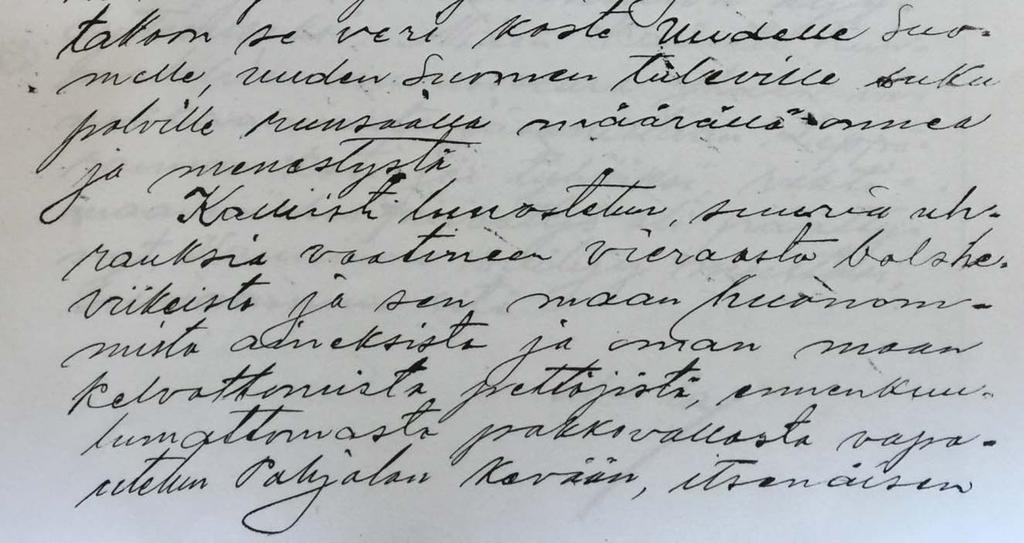 takoon se veri koste Uudelle Suo-
melle, uuden Suomen tuleville suku
polville runsaalla määrällä onnea
ja menestystä
Kalliisti lunastetun, suuria uh-
rauksia vaatineen vieraasta bolshe-
viikeista ja sen maan huonom-
mista aineksista ja oman maan
kelvottomista pettäjistä, ennenkuu-
lumattomasta pakkovallasta vapa-
utetun Pohjolan kevään, itsenäisen